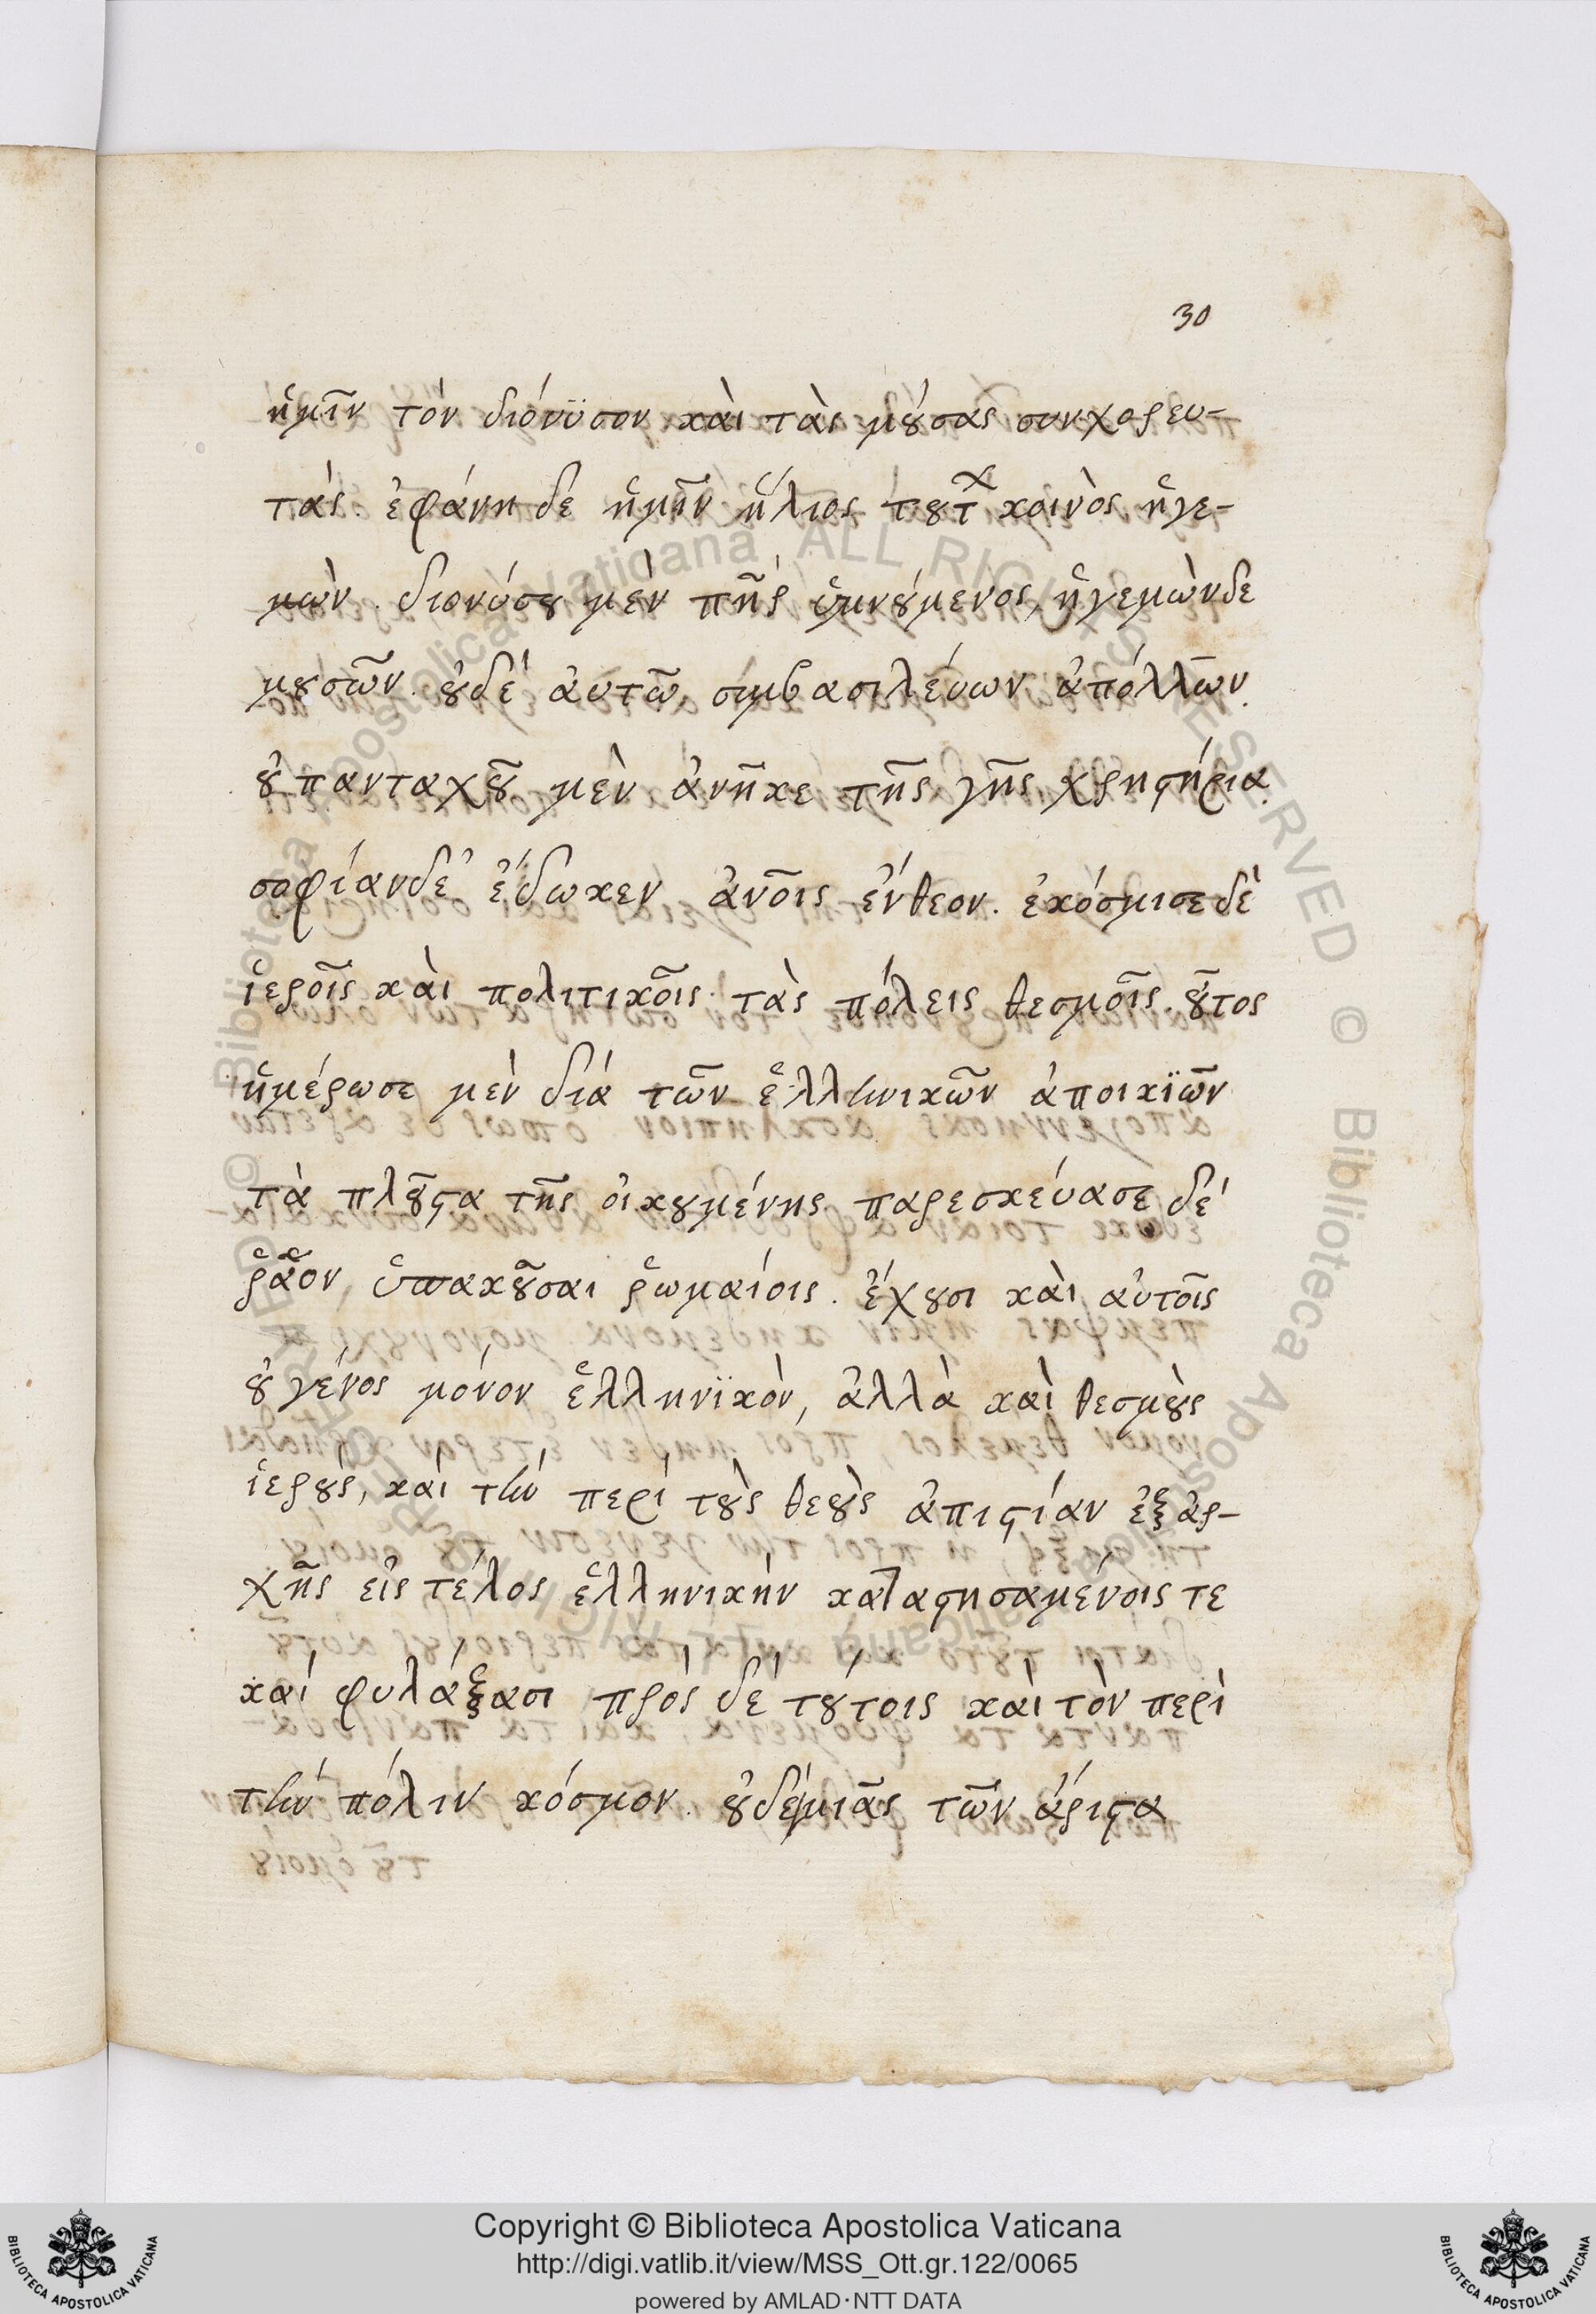 30
ἡμῖν τὸν διόνϋσον καὶ τὰς μούσας συνχορευ-
τάς. ἐφάνη δὲ ἡμῖν ἥλιος τουτ̃χ κοινὸς ἡγε-
μὼν. διονύσου μὲν πη̃ρ ὑμνούμενος, ἡγεμὼνδε
μουσῶν. οὐδέ ἀυτῶ συμβασιλέυων ἀπόλλων.
οὐ πανταχοῦ μὲν ἀνῆκε τῆς γῆς χρηστήρια
σοφίανδε ἔδωκεν ἀνο̃ις ἔνθεον. ἐκόσμισε δὲ
ἱεροῖς καὶ πολιτικοῖς τὰς πόλεις θεσμοῖς. οὗτος
ἡμέρωσε μὲν διά τῶν ἑλληνικῶν ἀποικϊῶν
τὰ πλοῦστα τῆς οἰκουμένης παρεσκέυασε δέ
ῥᾶον ὑπακοῦσαι ῥωμαίοις. ἔχουσι καὶ αὐτοῖς
οὐ γένος μόνον ἑλληνϊκὸν, ἀλλὰ καὶ θεσμοὺς
ἱεροὺς, καὶ τὴν περὶ τοὺς θεοὺς ἀπιστίαν ἐξ ἀρ-
χῆς εἰς τέλος ἑλληνικὴν καταστησαμένοις τε
καὶ φυλάξασι πρὸς δὲ τούτοις καὶ τὸν περὶ
τὴν πόλιν κόσμον. οὐδέμιᾶς τῶν ἄριστα
Copyright © Biblioteca Apostolica Vaticana
http://digi.vatlib.it/view/MSS_Ott.gr.122/0065
powered by AMLAD·NTT DATA